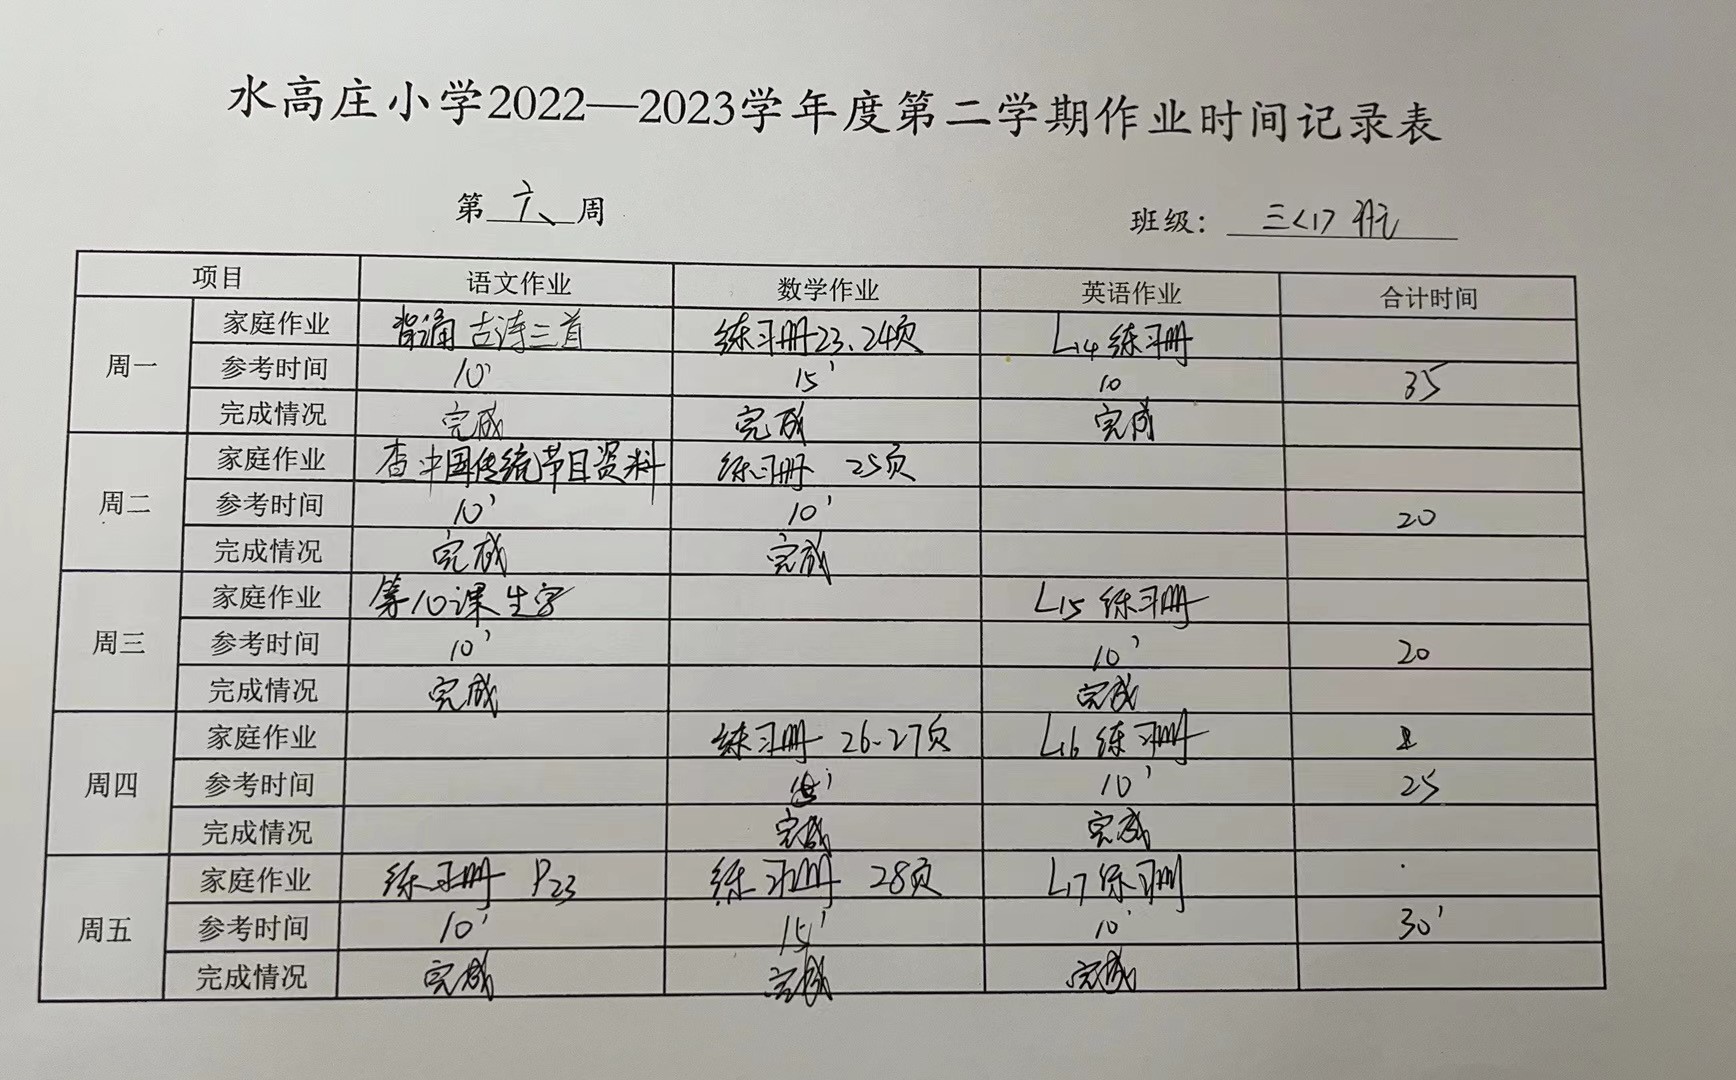 水高庄小学2022—2023学年度第二学期作业时间记录表
第 六 周 班级：三<1>班
项目 语文作业 数学作业 英语作业 合计时间
周一
家庭作业 背诵古诗三首 练习册23、24页 L14 练习册
参考时间 10' 15' 10 35
完成情况 完成 完成 完成
周二
家庭作业 查中国传统节目资料 练习册 25页
参考时间 10' 10' 20
完成情况 完成 完成
周三
家庭作业 第10课生字 L15 练习册
参考时间 10' 10' 20
完成情况 完成 完成
周四
家庭作业 练习册 26-27页 L16 练习册
参考时间 10' 25
完成情况 完成 完成
周五
家庭作业 练习册 P23 练习册 28页 L17 练习册
参考时间 10' 15' 10' 30'
完成情况 完成 完成 完成